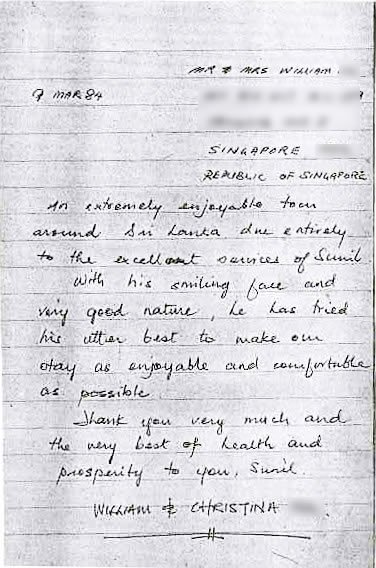 MR & MRS WILLIAM
9 MAR 84
SINGAPORE
REPUBLIC OF SINGAPORE
An extremely enjoyable tour
around Sri Lanka due entirely
to the excellent services of Sunil.
With his smiling face and
very good nature, he has tried
his utter best to make our
stay as enjoyable and comfortable
as possible.
Thank you very much and
the very best of health and
prosperity to you, Sunil.
WILLIAM & CHRISTINA